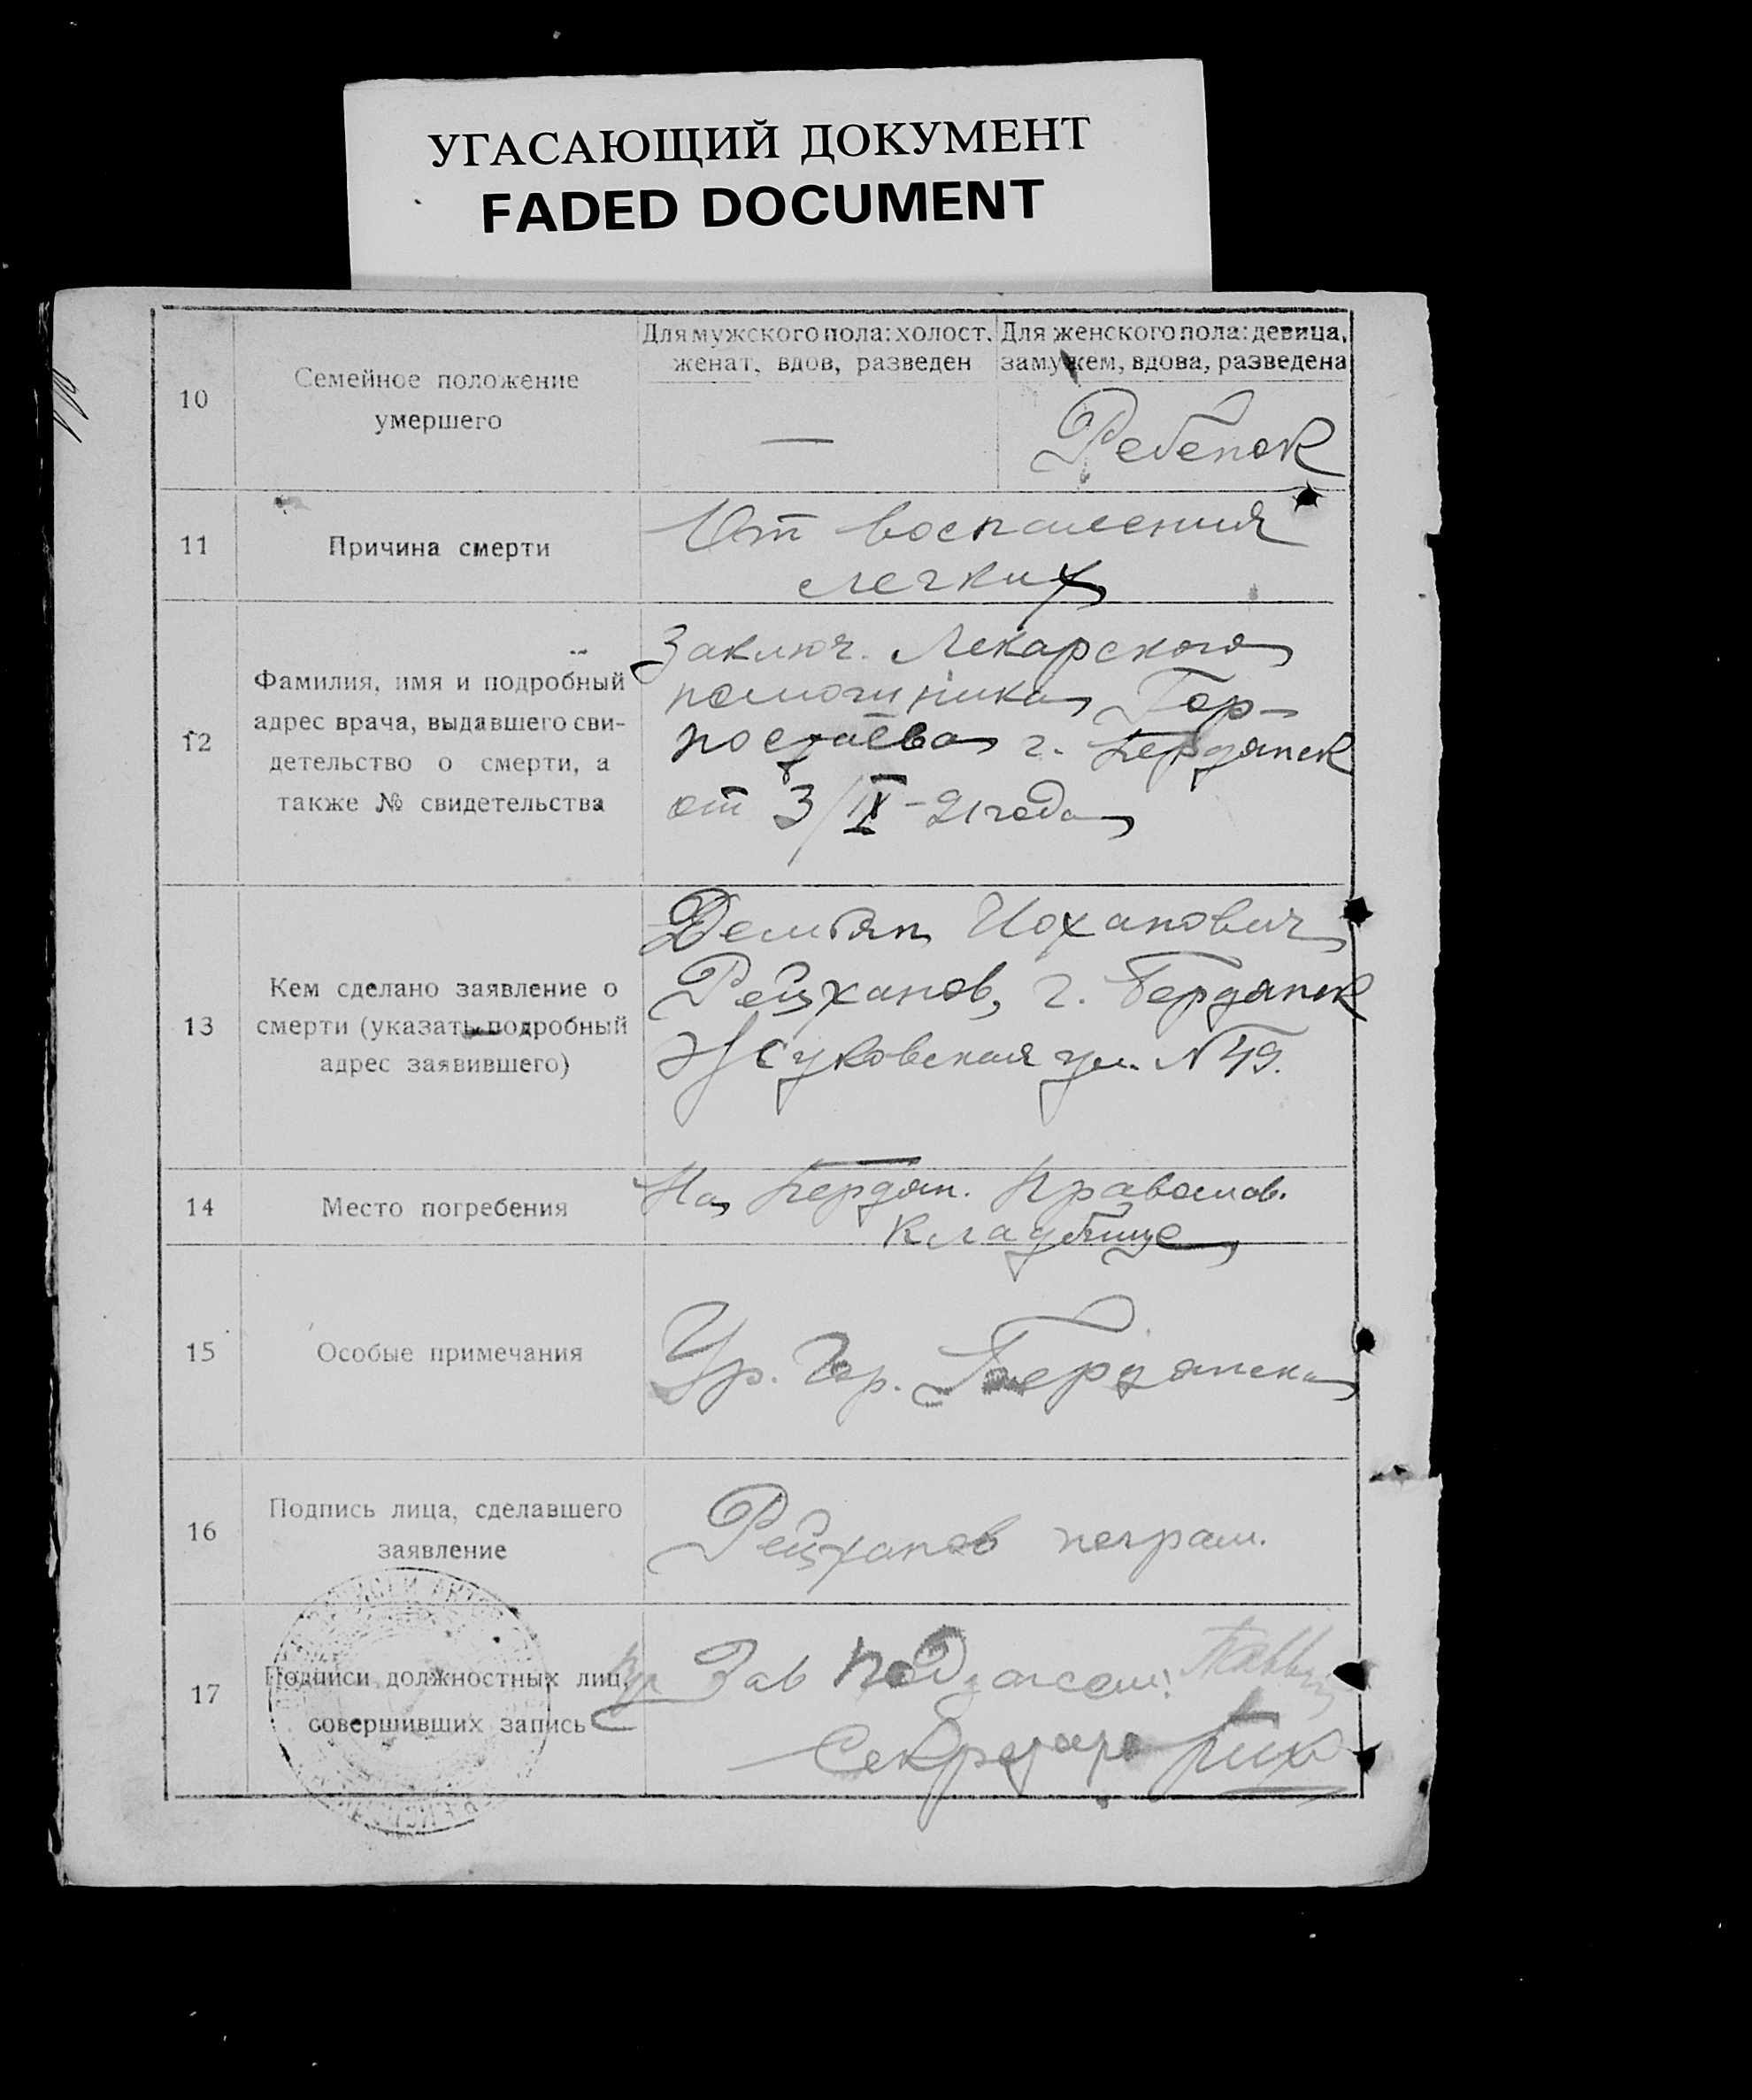 УГАСАЮЩИЙ ДОКУМЕНТ
FADED DOCUMENT
10
Семейное положение
умершего
Для мужского пола: холост,
женат, вдов, разведен
—
Для женского пола: девица,
замужем, вдова, разведена
Ребенок
11
Причина смерти
От воспаления
легких
12
Фамилия, имя и подробный
адрес врача, выдавшего сви-
детельство о смерти, а
также № свидетельства
Заключ. Лекарского
помощника Гор-
ностаева г. Бердянск
от 3/IX-21 года
13
Кем сделано заявление о
смерти (указать подробный
адрес заявившего)
Демьян Иоханович
Рейханов, г. Бердянск
Жуковская ул. N 49.
14
Место погребения
На Бердян. Православ.
кладбище
15
Особые примечания
Ур. гор. Бердянска
16
Подпись лица, сделавшего
заявление
Рейханов неграм.
17
Подписи должностных лиц,
совершивших запись
Зав
Секретарь